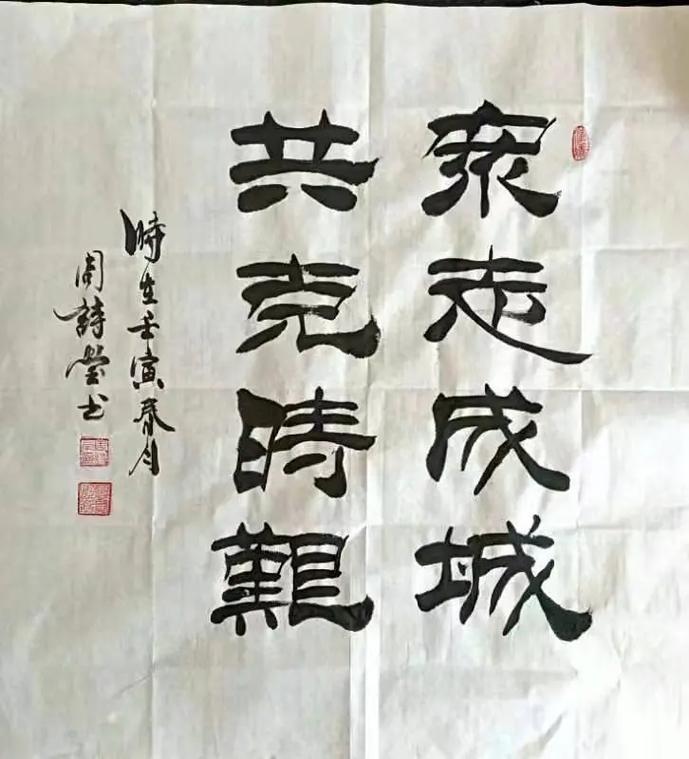 眾志成城
共克時艱
時在壬寅春月
周詩瑩書